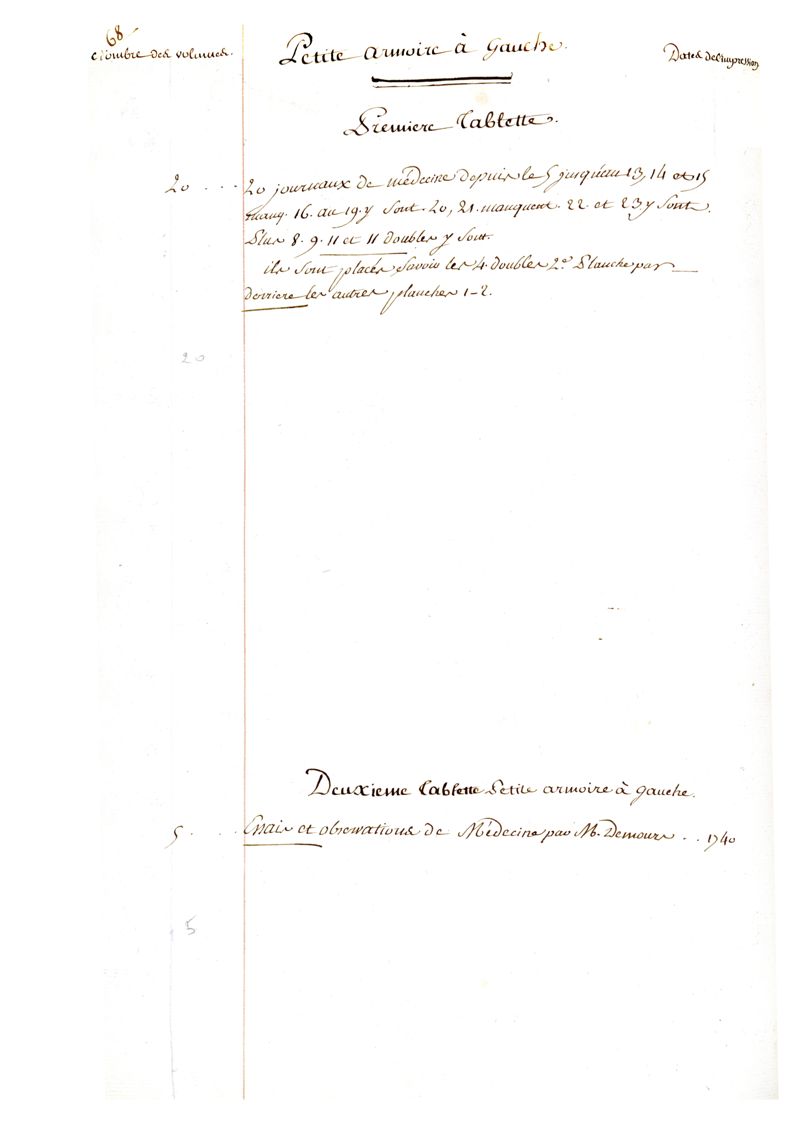 68
Nombre des volumes.
Petite armoire à Gauche.
Dates de l'impression
Premiere Tablette.
20 . . . 20 journaux de médecine depuis le 5 jusqu'au 13, 14 et 15
manq. 16. au 19. y sont. 20, 21. manquent. 22. et 23 y sont.
Plus 8. 9. 11 et 11 doubles y sont.
ils sont placés, Savoir les 4. doubles 2.e Planche par
derriere les autres planches 1-2.
20
Deuxieme Tablette Petite armoire à gauche.
5 . . . Essais et observations de Médecine par M. Demours . . 1740
5